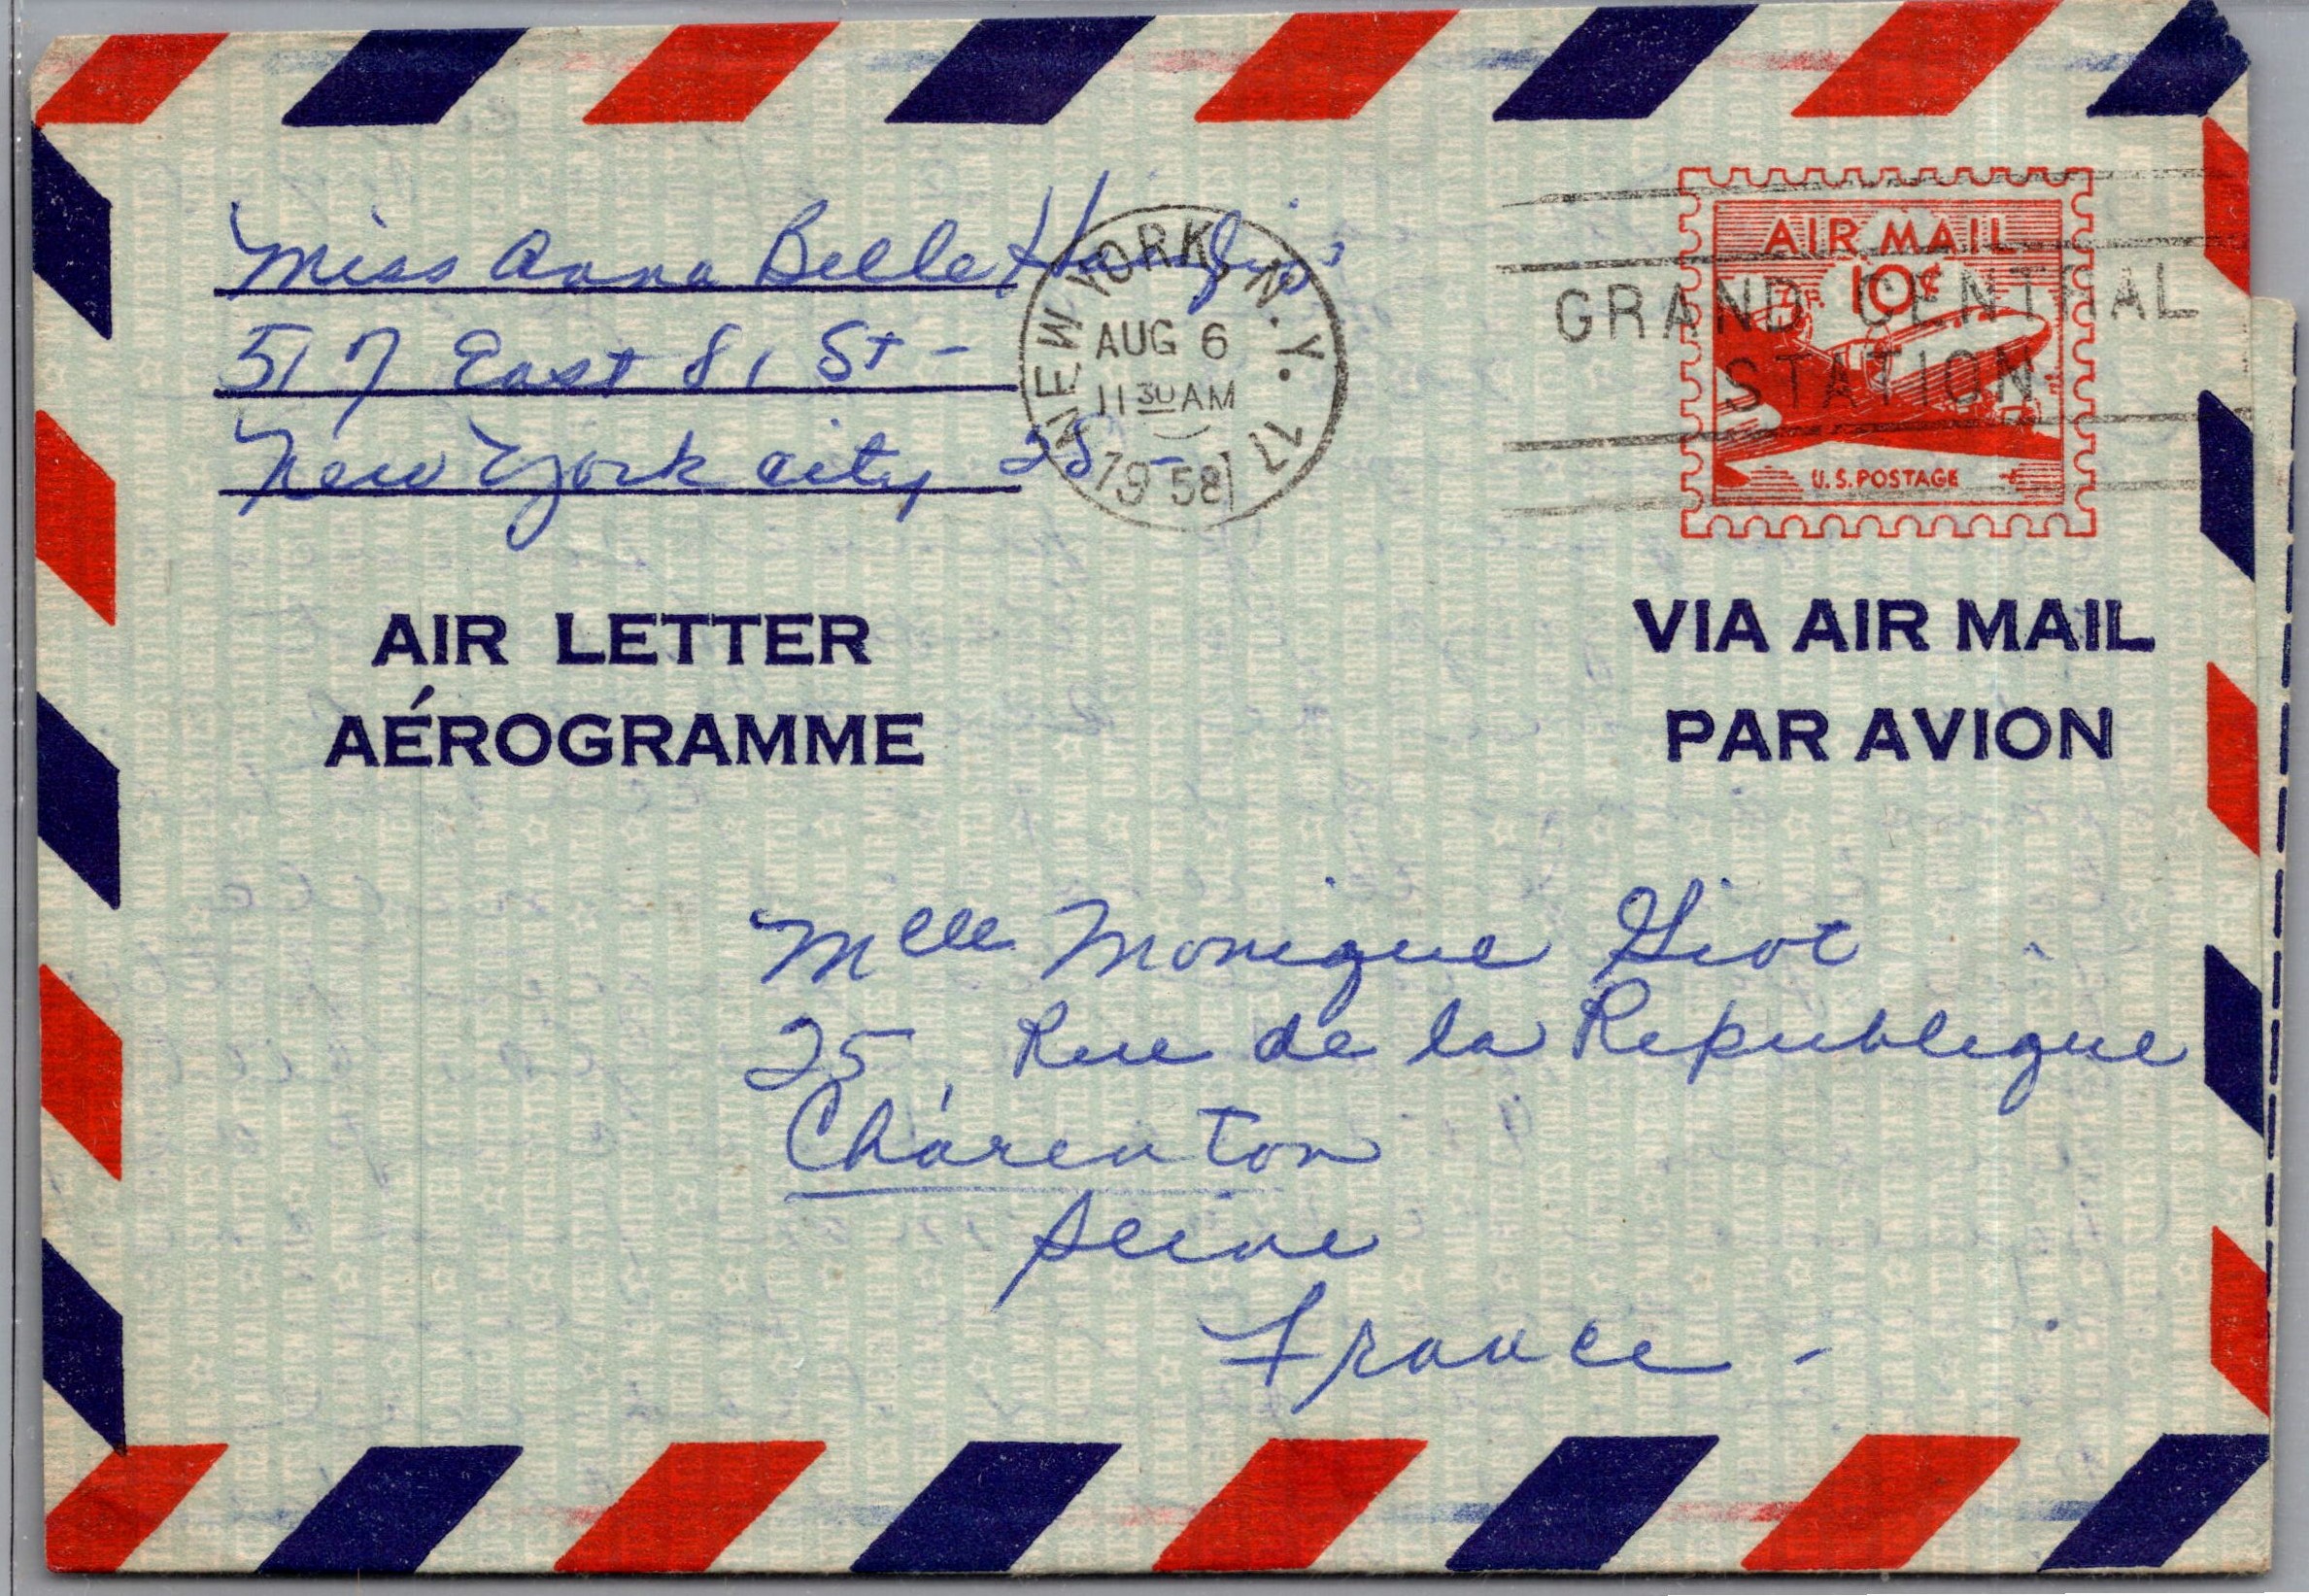 Miss Anna Belle
517 East 81 St -
New York city 28 -
NEW YORK, N.Y. 17
AUG 6
11 30 AM
1958
AIR MAIL
10¢
U.S. POSTAGE
GRAND CENTRAL
STATION
AIR LETTER
AÉROGRAMME
VIA AIR MAIL
PAR AVION
Mlle Monique Giot
25, Rue de la Republique
Charenton
Seine
France -